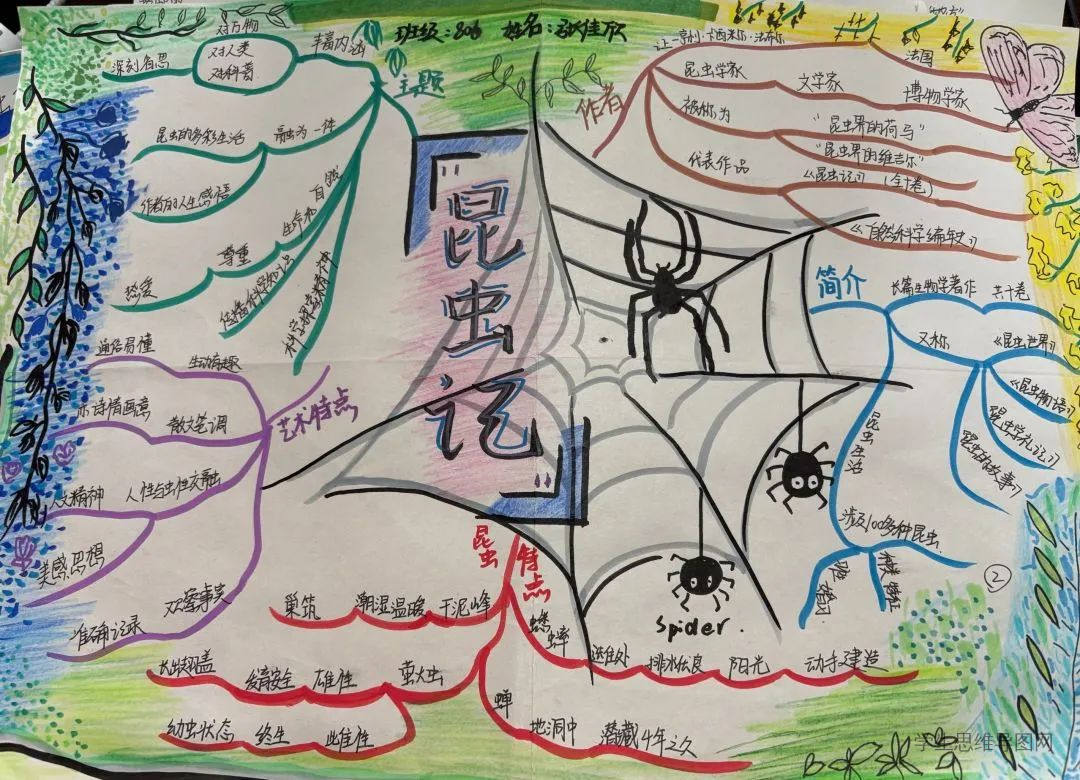 班级：806 姓名：张佳欣
『昆虫记』
主题
丰富内涵
对万物
对人类
对科普
深刻自思
融为一体
昆虫的多彩生活
作者的人生感悟
生命和自然
尊重
热爱
传播科学知识
艺术特点
生动有趣
通俗易懂
散文笔调
诗情画意
人性与虫性交融
人文精神
美感思想
观察事实
准确记录
作者
让-亨利·卡西米尔·法布尔
法国
昆虫学家
文学家
博物学家
被称为
"昆虫界的荷马"
"昆虫界的维吉尔"
代表作品
《昆虫记》（全十卷）
《自然科学编年史》
简介
长篇生物学著作
共十卷
又称
《昆虫世界》
《昆虫物语》
昆虫学札记》
昆虫的故事》
昆虫生活
涉及100多种昆虫
②
spider.
昆虫
特点
干泥蜂
潮湿温暖
巢筑
萤火虫
雄性
发育安全
长出翅盖
雌性
终生
幼虫状态
蟋蟀
选住处
排水优良
阳光
动手建造
蝉
地洞中
潜藏4年之久
学生思维导图网